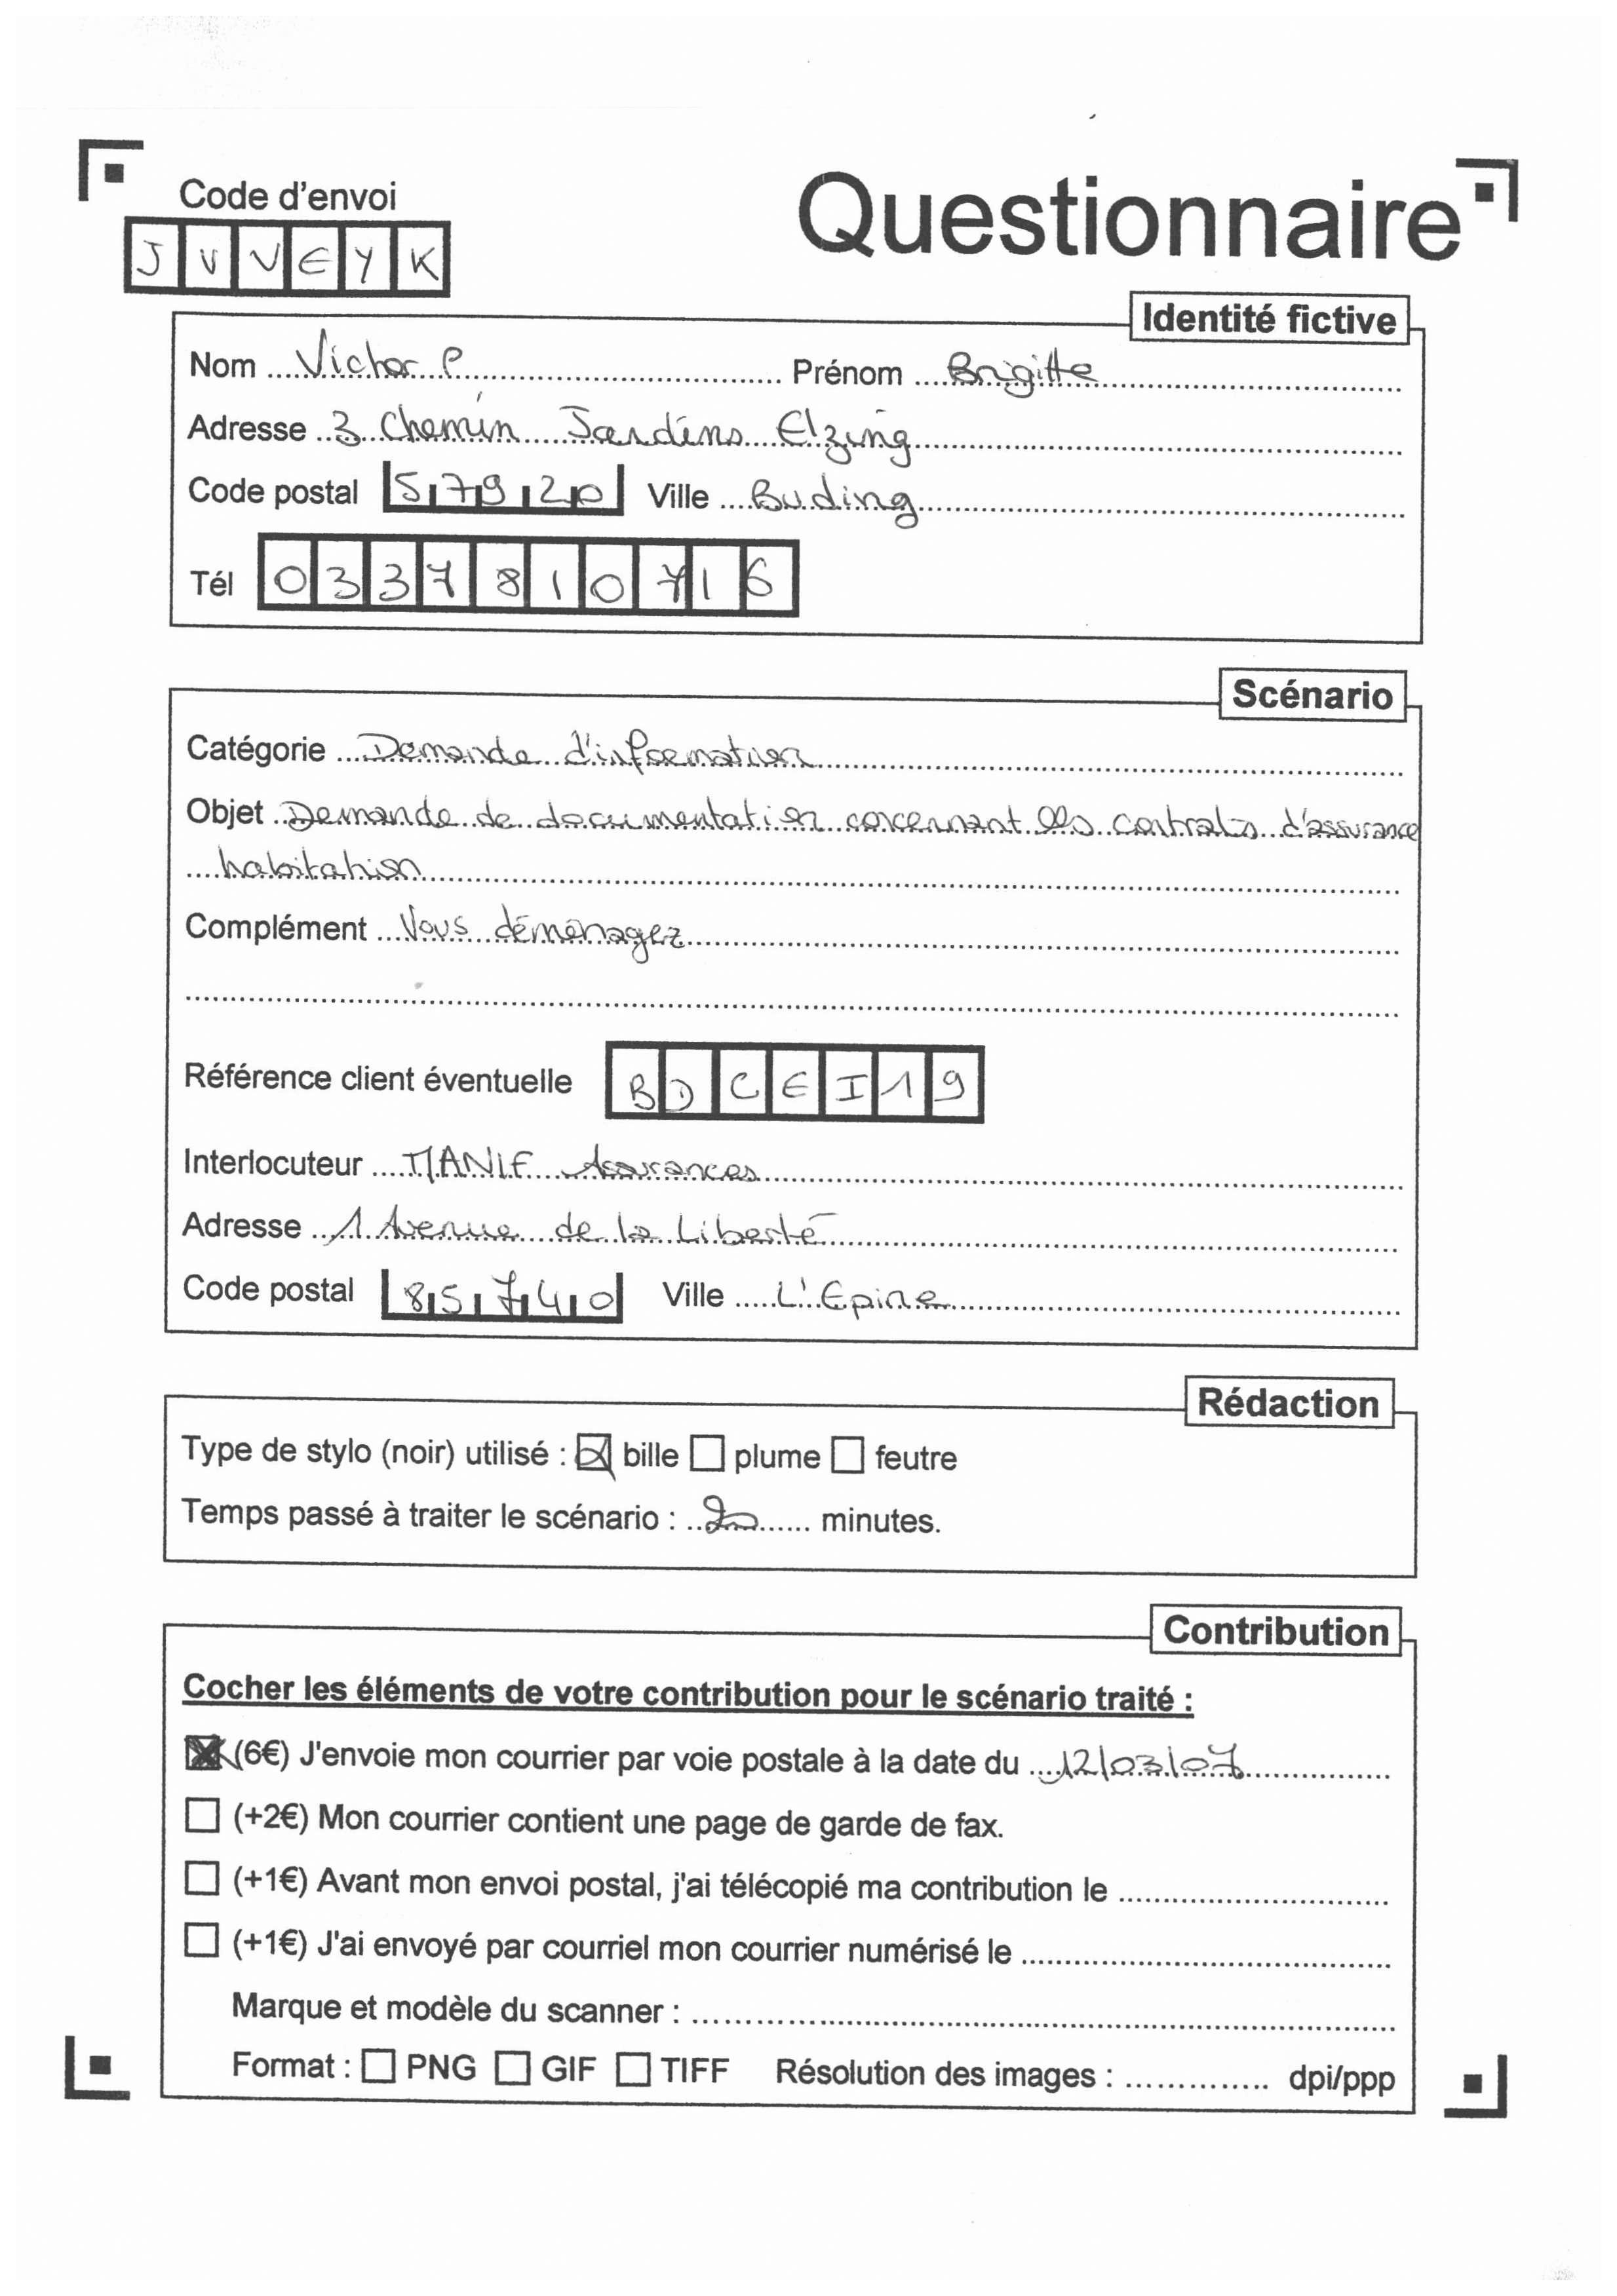 Questionnaire
Code d'envoi
J V V E Y K
Identité fictive
Nom Victor P. Prénom Brigitte
Adresse 3 Chemin Jardins Elzing
Code postal 57920 Ville Buding
Tél 0337810716
Scénario
Catégorie Demande d'information
Objet Demande de documentation concernant les contrats d'assurance
habitation
Complément Vous déménagez
Référence client éventuelle BDCEI19
Interlocuteur MANIF Assurances
Adresse 1 Avenue de la Liberté
Code postal 85740 Ville L'Epine
Rédaction
Type de stylo (noir) utilisé : bille plume feutre
Temps passé à traiter le scénario : 20 minutes.
Contribution
Cocher les éléments de votre contribution pour le scénario traité :
(6€) J'envoie mon courrier par voie postale à la date du 12/03/07
(+2€) Mon courrier contient une page de garde de fax.
(+1€) Avant mon envoi postal, j'ai télécopié ma contribution le
(+1€) J'ai envoyé par courriel mon courrier numérisé le
Marque et modèle du scanner :
Format : PNG GIF TIFF Résolution des images : dpi/ppp